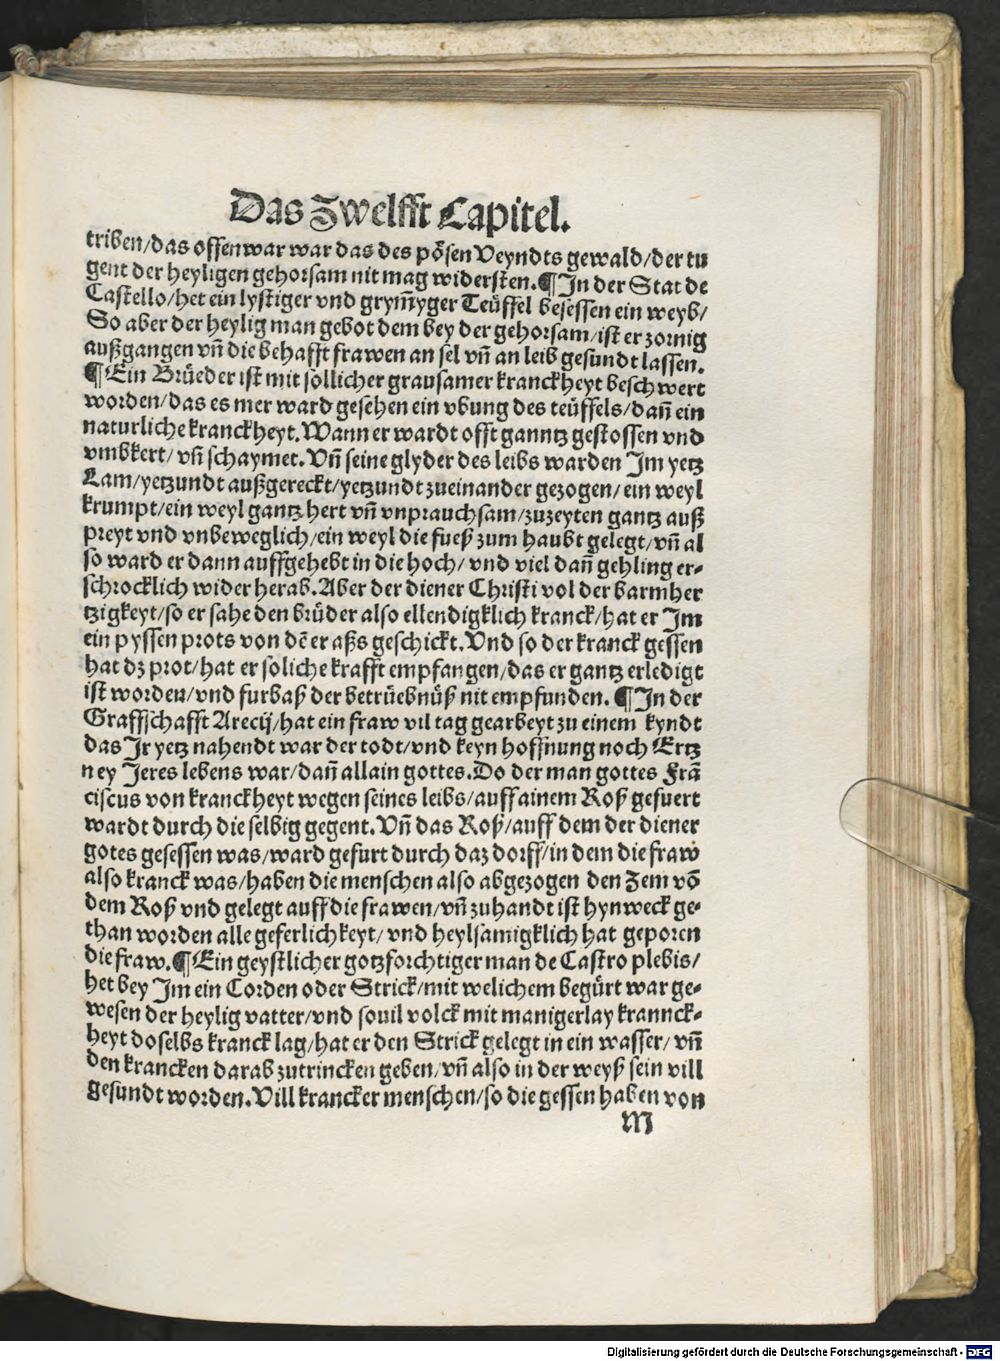 Das Zwelfft Capitel.
triben/das offenwar war das des pösen Veyndts gewald/der tu
gent der heyligen gehorsam nit mag widersten.¶In der Stat de
Castello/het ein lystiger vnd grym̃yger Teüffel besessen ein weyb/
So aber der heylig man gebot dem bey der gehorsam/ist er zornig
außgangen vñ die behafft frawen an sel vñ an leib gesundt lassen.
¶Ein Brüeder ist mit sollicher grausamer kranckheyt beschwert
worden/das es mer ward gesehen ein vbung des teüffels/dañ ein
naturliche kranckheyt.Wann er wardt offt ganntz gestossen vnd
vmbkert/vñ schaymet.Vñ seine glyder des leibs warden Im yetz
Lam/yetzundt außgereckt/yetzundt zueinander gezogen/ein weyl
krumpt/ein weyl gantz hert vñ vnprauchsam/zuzeyten gantz auß
preyt vnd vnbeweglich/ein weyl die fueß zum haubt gelegt/vñ al
so ward er dann auffgehebt in die hoch/vnd viel dañ gehling er-
schrocklich wider herab.Aber der diener Christi vol der barmher
tzigkeyt/so er sahe den brüder also ellendigklich kranck/hat er Im
ein pyssen prots von dẽ er aßs geschickt.Vnd so der kranck gessen
hat dz prot/hat er soliche krafft empfangen/das er gantz erledigt
ist worden/vnd furbaß der betrüebnüß nit empfunden.¶In der
Graffschafft Arecij/hat ein fraw vil tag gearbeyt zu einem kyndt
das Ir yetz nahendt war der todt/vnd keyn hoffnung noch Ertz
ney Jeres lebens war/dañ allain gottes.Do der man gottes Frã
ciscus von kranckheyt wegen seines leibs/auff ainem Roß gefuert
wardt durch die selbig gegent.Vñ das Roß/auff dem der diener
gotes gesessen was/ward gefurt durch daz dorff/in dem die fraw
also kranck was/haben die menschen also abgezogen den Zem võ
dem Roß vnd gelegt auff die frawen/vñ zuhandt ist hynweck ge-
than worden alle geferlichkeyt/vnd heylsamigklich hat geporen
die fraw.¶Ein geystlicher gotzforchtiger man de Castro plebis/
het bey Im ein Corden oder Strick/mit welichem begürt war ge-
wesen der heylig vatter/vnd souil volck mit manigerlay krannck-
heyt doselbs kranck lag/hat er den Strick gelegt in ein wasser/vñ
den krancken darab zutrincken geben/vñ also in der weyß sein vill
gesundt worden.Vill krancker menschen/so die gessen haben von
M
Digitalisierung gefördert durch die Deutsche Forschungsgemeinschaft - DFG